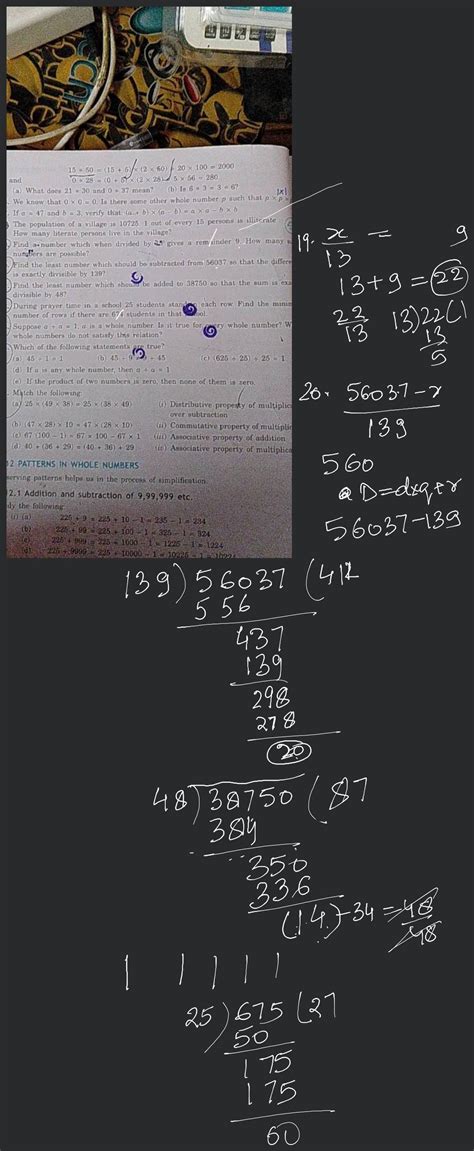 15 × 50 = (15 + 5) × (2 × 50) + 20 × 100 = 2000
and 0 × 28 = (0 + 5) × (2 × 28) 5 × 56 = 280
(a) What does 21 × 30 and 0 × 37 mean? (b) Is 6 × 3 = 3 × 6?
We know that 0 × 0 = 0. Is there some other whole number p such that p × p
If a = 47 and b = 3, verify that (a + b) × (a − b) = a × a − b × b
The population of a village is 10725. 1 out of every 15 persons is illiterate
How many literate persons live in the village?
Find a number which when divided by gives a remainder 9. How many
numbers are possible?
Find the least number which should be subtracted from 56037 so that the differe
is exactly divisible by 139?
Find the least number which should be added to 38750 so that the sum is exa
divisible by 48?
During prayer time in a school 25 students stand each row. Find the
number of rows if there are 675 students in that school.
Suppose a ÷ a = 1, a is a whole number. Is it true for every whole number? W
whole numbers do not satisfy this relation?
Which of the following statements are true?
(a) 45 ÷ 1 = 1 (b) 45 ÷ 9 = 45 (c) (625 ÷ 25) ÷ 25 = 1
(d) If a is any whole number, then a ÷ a = 1
(e) If the product of two numbers is zero, then none of them is zero.
Match the following
(a) 25 × (49 × 38) = 25 × (38 × 49) (i) Distributive property of multiplic
over subtraction
(b) (47 × 28) × 10 = 47 × (28 × 10) (ii) Commutative property of multiplic
(c) 67 (100 − 1) = 67 × 100 − 67 × 1 (iii) Associative property of addition
(d) 40 + (36 + 29) = (40 + 36) + 29 (iv) Associative property of multiplica
2 PATTERNS IN WHOLE NUMBERS
serving patterns helps us in the process of simplification.
2.1 Addition and subtraction of 9,99,999 etc.
dy the following
(i) (a) 225 + 9 = 225 + 10 − 1 = 235 − 1 = 234
(b) 225 + 99 = 225 + 100 − 1 = 325 − 1 = 324
(c) 225 + 999 = 225 + 1000 − 1 = 1225 − 1 = 1224
(d) 225 + 9999 = 225 + 10000 − 1 = 10225 − 1 = 10224
19. x/13 = 9
13 + 9 = 22
22/13 13)22(1
13
5
20. 56037 − r
139
560
D = d×q+r
56037 − 139
139) 56037 (412
556
437
139
298
278
20
48) 38750 (87
384
350
336
(14) − 34 = 48/48
1 1 1 1 1
25) 675 (27
50
175
175
60